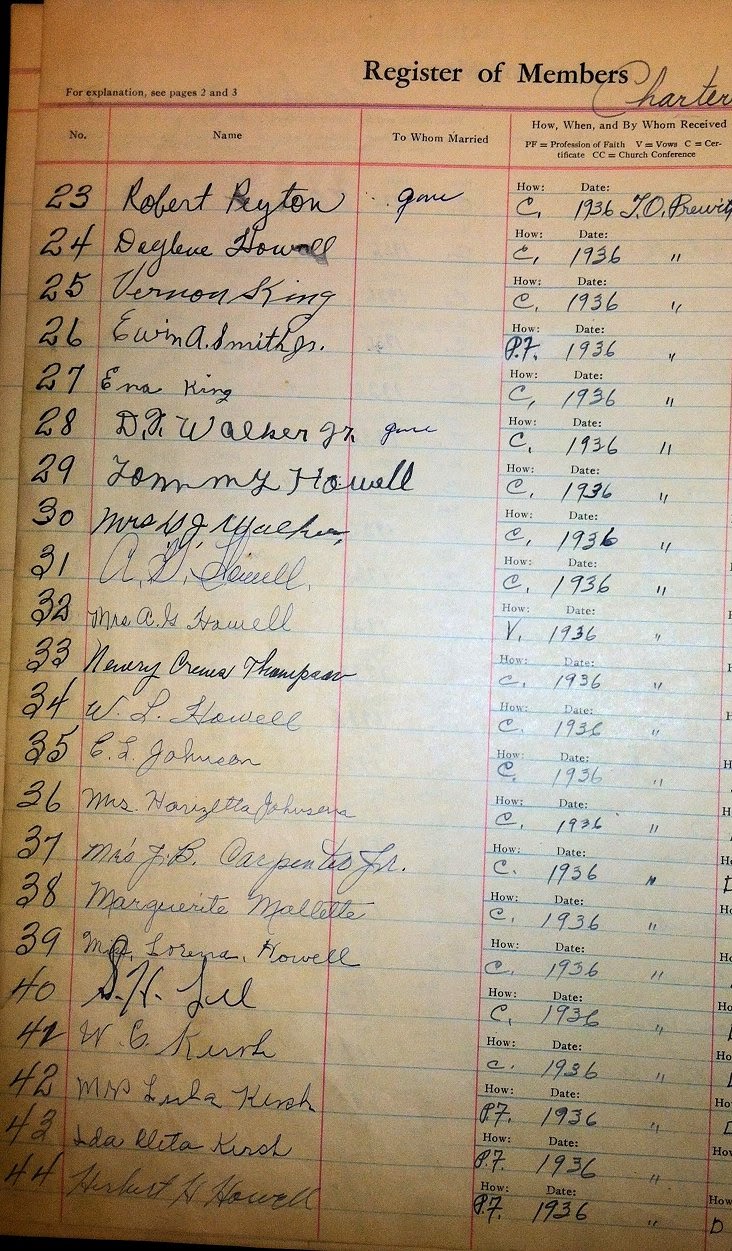 Register of Members
Charter
For explanation, see pages 2 and 3
No. Name To Whom Married How, When, and By Whom Received
PF = Profession of Faith V = Vows C = Cer-
tificate CC = Church Conference
How: Date:
23 Robert Peyton gone C. 1936 T.O. Prewitt
How: Date:
24 Howell C, 1936 "
How: Date:
25 Vernon King C, 1936 "
How: Date:
26 A. Smith Jr. P.F. 1936 "
How: Date:
27 Ena King C, 1936 "
How: Date:
28 Walker Jr. gone C, 1936 "
How: Date:
29 Tommy Howell C, 1936 "
How: Date:
30 Mrs Walker C, 1936 "
How: Date:
31 A. G. Howell. C, 1936 "
How: Date:
32 Mrs A. G Howell V. 1936 "
How: Date:
33 Thompson C. 1936 "
How: Date:
34 W. L. Howell C. 1936 "
How: Date:
35 E. L. Johnson C. 1936 "
How: Date:
36 Mrs. C. 1936 "
How: Date:
37 Mrs J. B. Carpenter Jr. C. 1936 "
How: Date:
38 Marguerite Mallette C. 1936 "
How: Date:
39 Mrs. Lorena Howell C. 1936 "
How: Date:
40 S. H. C, 1936 "
How: Date:
41 W. C. Kirsh C. 1936 "
How: Date:
42 Mrs Lula Kirsh P.F. 1936 "
How: Date:
43 Ida Kirsh P.F. 1936 "
How: Date:
44 Herbert H Howell P.F. 1936 "